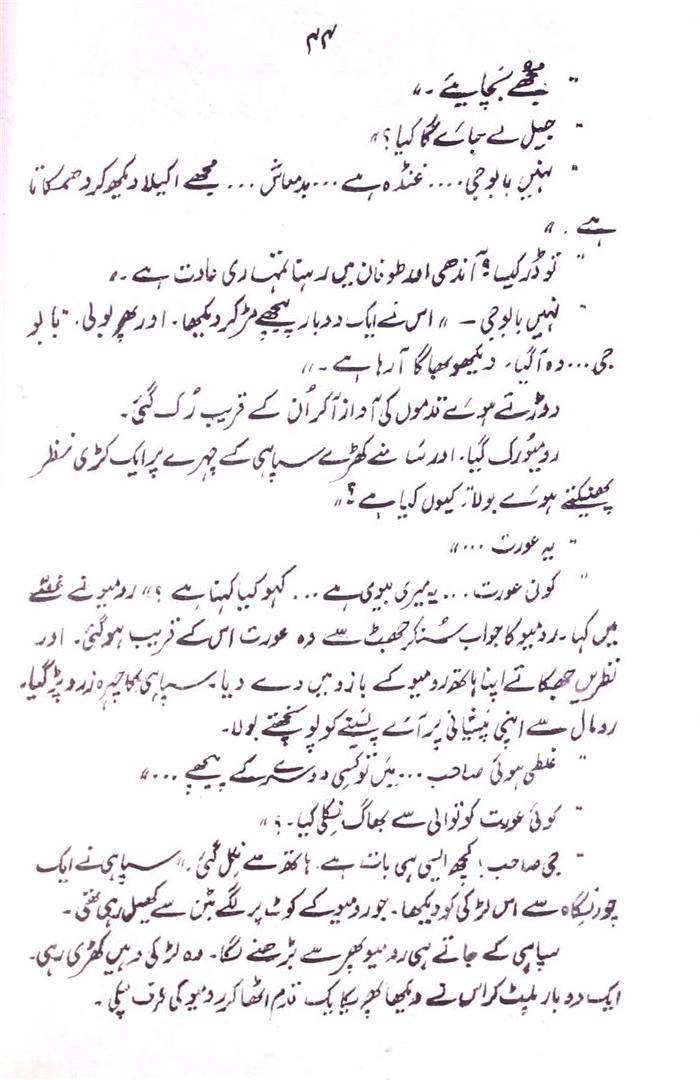 ۴۴
" مجھے بچایئے ۔"
" جیل لے جائے گا کیا ؟"
" نہیں بابو جی .... غنڈہ ہے ... بدمعاش ... مجھے اکیلا دیکھ کر دھمکاتا
ہے ۔"
" تو ڈر کیسا ؟ آندھی اور طوفان میں رہنا تمہاری عادت ہے ۔"
" نہیں بابو جی ۔ " اس نے ایک دو بار پیچھے مڑ کر دیکھا۔ اور پھر بولی۔ "بابو
جی ... وہ آگیا۔ دیکھو بھاگا آ رہا ہے ۔"
دوڑتے ہوئے قدموں کی آواز آکر اُن کے قریب رُک گئی۔
رومیو رک گیا۔ اور سامنے کھڑے سپاہی کے چہرے پر ایک کڑی نظر
پھینکتے ہوئے بولا۔ کیوں کیا ہے ؟"
" یہ عورت ..."
" کون عورت ... یہ میری بیوی ہے ... کہو کیا کہنا ہے ؟" رومیو نے غصّے
میں کہا۔ رومیو کا جواب سُنکر جھٹ سے وہ عورت اس کے قریب ہوگئی۔ اور
نظریں جھکائے اپنا ہاتھ رومیو کے بازو میں دے دیا۔ سپاہی کا چہرہ زرد پڑ گیا۔
رومال سے اپنی پیشانی پر آئے پسینے کو پونچھتے بولا۔
" غلطی ہوئی صاحب ... میں تو کسی دوسرے کے پیچھے ..."
" کوئی عورت کوتوالی سے بھاگ نکلی کیا۔ ؟"
" جی صاحب ! کچھ ایسی ہی بات ہے۔ ہاتھ سے نکل گئی ۔" سپاہی نے ایک
چور نگاہ سے اس لڑکی کو دیکھا۔ جو رومیو کے کوٹ پر لگے بٹن سے کھیل رہی تھی ۔
سپاہی کے جاتے ہی رومیو پھر سے بڑھنے لگا۔ وہ لڑکی وہیں کھڑی رہی۔
ایک دو بار پلٹ کر اس نے دیکھا پھر یکایک قدم اٹھا کر رومیو کی طرف لپکی ۔